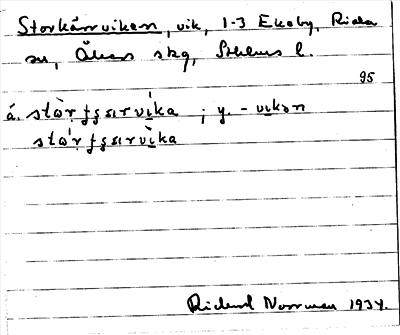 Storkärrviken, vik, 1-3 Ekeby, Riala
sn, Åkers skg, Sthlms l.
95
á. stòrʈʂærvíka ; y. -vikən
stórʈʂærvìka
Rickard Norrman 1934.